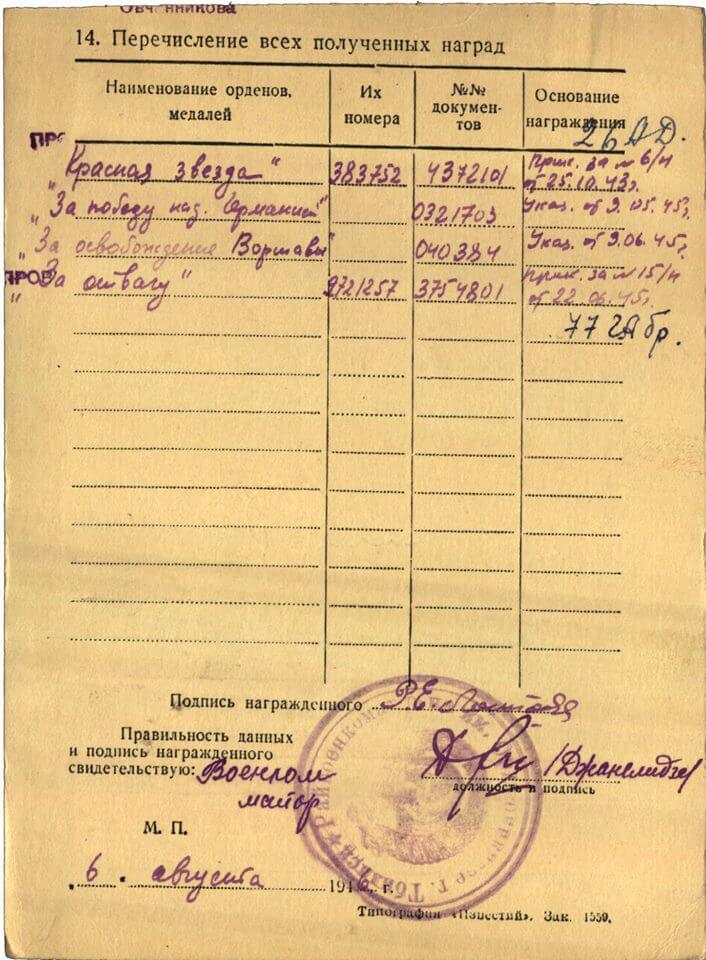 Овчинникова
14. Перечисление всех полученных наград
Наименование орденов, медалей
Их номера
№№ документов
Основание награждения
26 АД.
ПРОВ
"Красная звезда" 383752 4372101 Прик. за № 6/н
от 25.10.43г.
"За победу над Германией" 0321703 Указ. от 9.05.45г.
"За освобождение Воршавы" 040384 Указ. от 9.06.45г.
ПРОВ
"За отвагу" 2721257 3754801 прик. за № 15/н
от 22.06.45г.
77 бр.
Подпись награжденного Р.Е.
Правильность данных
и подпись награжденного
свидетельствую: Военком
майор
/Джанелидзе/
должность и подпись
М. П.
6. августа 194 г.
Типография «Известий». Зак. 1559.